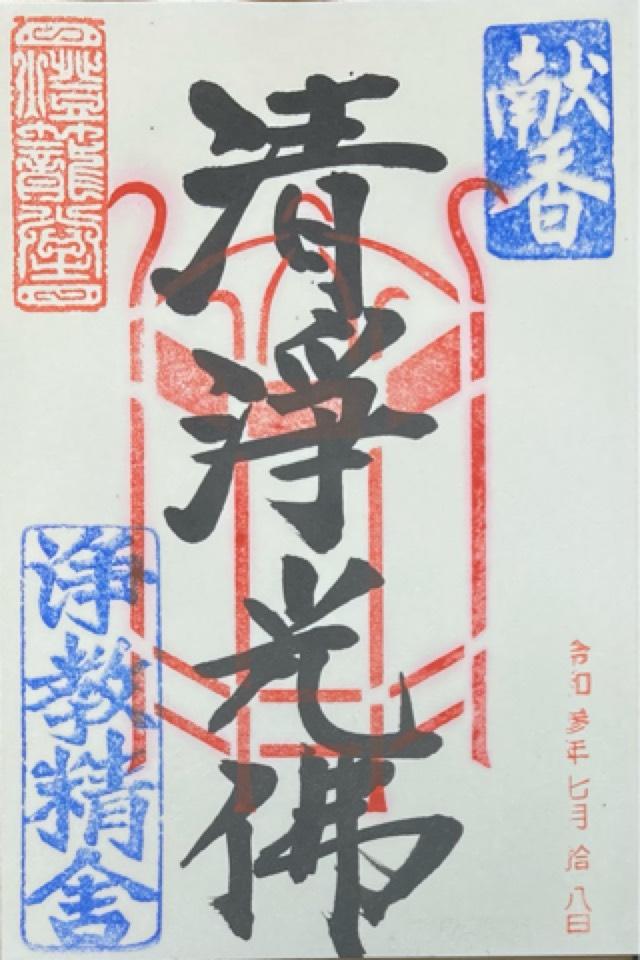 献香
令和参年七月拾八日
清浄光佛
浄教精舎